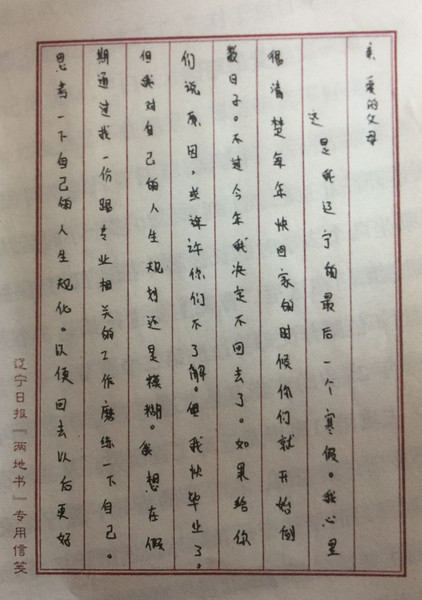 亲爱的父母
这是我辽宁的最后一个寒假。我心里
很清楚每年快回家的时候你们就开始倒
数日子。不过今年我决定不回去了。如果给你
们说原因，也许许你们不了解。但我快毕业了。
但我对自己的人生规划还是模糊。我想在假
期通过找一份跟专业相关的工作磨练一下自己。
思考一下自己的人生规化。以便回去以后更好
辽宁日报『两地书』专用信笺